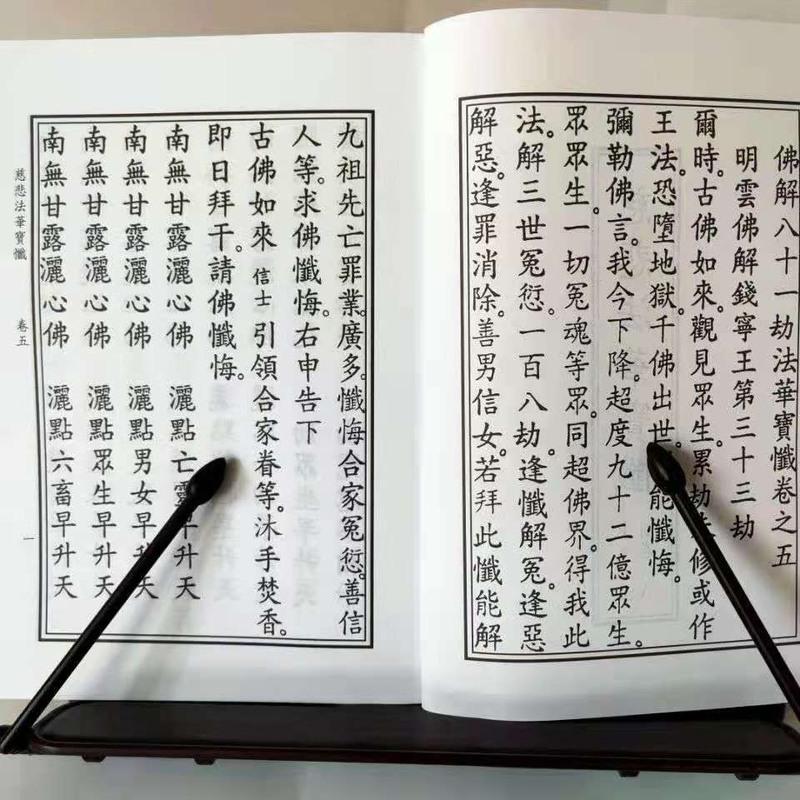 佛解八十一劫法華寶懺卷之五
明雲佛解錢寧王第三十三劫
爾時。古佛如來。觀見眾生。累劫修或作
王法。恐墮地獄。千佛出世能懺悔。
彌勒佛言。我今下降。超度九十二億眾生。
眾眾生。一切冤魂等眾。同超佛界。得我此
法。解三世冤愆。一百八劫。逢懺解冤。逢惡
解惡。逢罪消除。善男信女。若拜此懺能解
九祖先亡罪業。廣多。懺悔合家冤愆。善信
人等。求佛懺悔。右申告下
古佛如來 信士 引領合家眷等。沐手焚香。
即日拜干。請佛懺悔。
南無甘露灑心佛 灑點亡靈早升天
南無甘露灑心佛 灑點男女早升天
南無甘露灑心佛 灑點眾生早升天
南無甘露灑心佛 灑點六畜早升天
慈悲法華寶懺 卷五 一